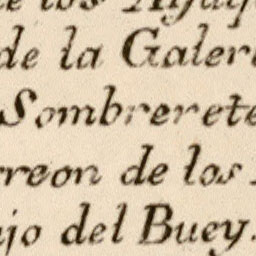 de los
de la Galer
Sombrerete
rreon de los
ajo del Buey.